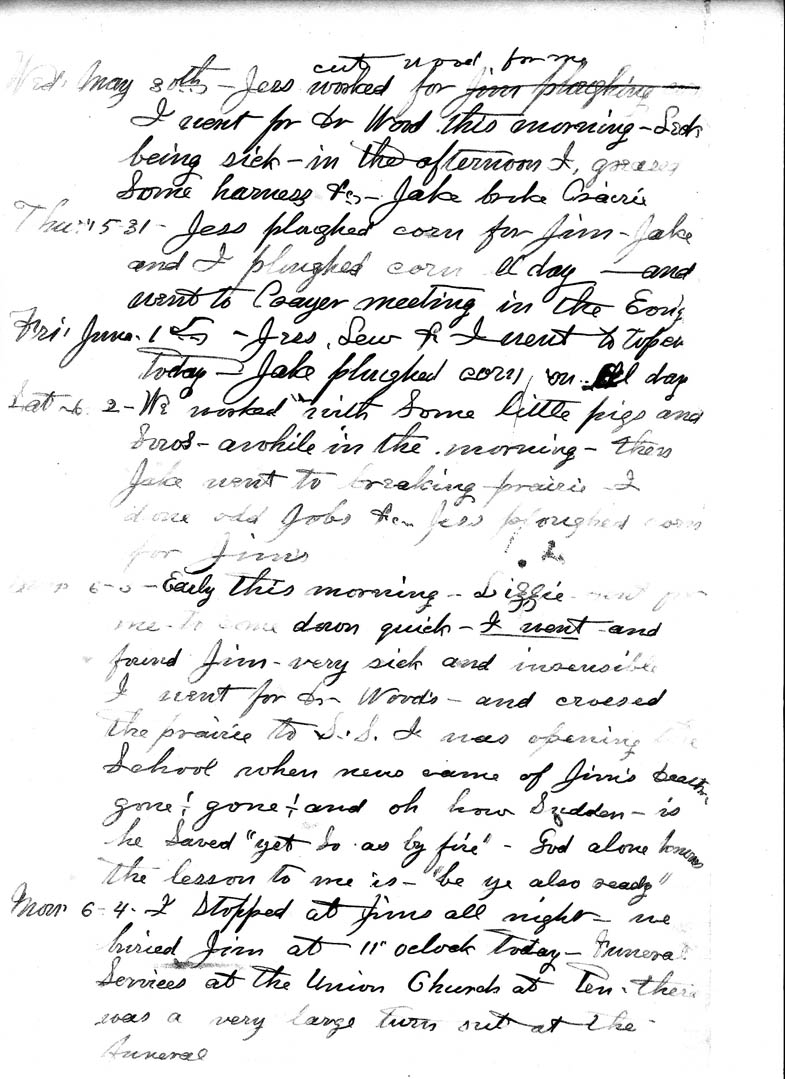 cut wood for me
Wed. May 30th - Jess worked for Jim ploughing
I went for Dr Wood this morning -
being sick - in the afternoon I, greased
Some harness &c - Jake broke Prairie
Thur 5-31 - Jess ploghed corn for Jim - Jake
and I ploughed corn all day - and
went to Prayer meeting in the Evnig
Fri. June 1st - Jess, Lew & I went to
today - Jake plughed corn, on all day
Sat 6 2 - We worked with some little pigs and
- awhile in the morning - then
Jake went to breaking prairie - I
done odd Jobs &c - Jess ploughed corn
for Jim's
6-3 - Early this morning - Lizzie went for
me to come down quick - I went - and
found Jim - very sick and insensible
I went for Dr Woods - and crossed
the prairie to S.S. I was opening the
School when news came of Jim's death
gone! gone! and oh how Sudden - is
he Saved "yet So as by fire" - God alone knows
the lesson to me is - "be ye also ready"
Mon 6-4. I Stopped at Jims all night - we
buried Jim at 11 oclock today - Funeral
Services at the Union Church at Ten. there
was a very large turn out at the
funeral